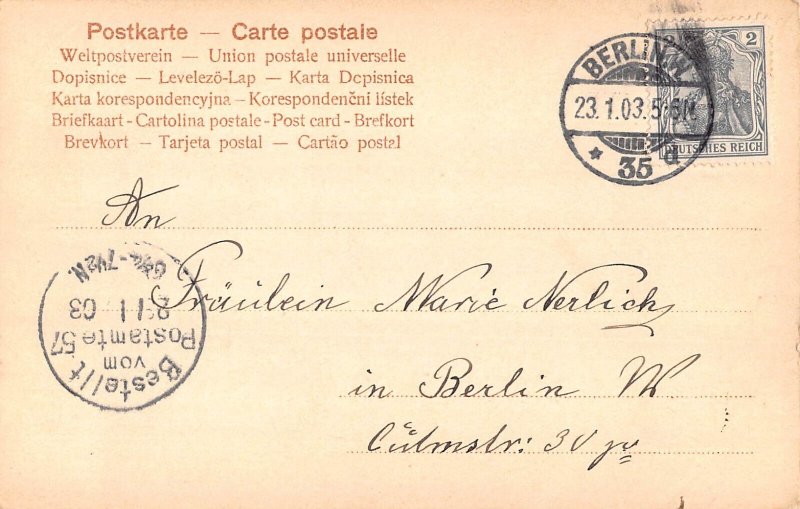 Postkarte — Carte postale
Weltpostverein — Union postale universelle
Dopisnice — Levelező-Lap — Karta Dopisnica
Karta korespondencyjna - Korespondenční lístek
Briefkaart - Cartolina postale - Post card - Brefkort
Brevkort — Tarjeta postal — Cartão postal
BERLIN.W.
23.1.03.5-6N.
* 35 d
2
DEUTSCHES REICH
An
Fräulein Marie Nerlich
in Berlin W
Culmstr:
Bestellt
vom
Postamte 57
1 03
-7½N.